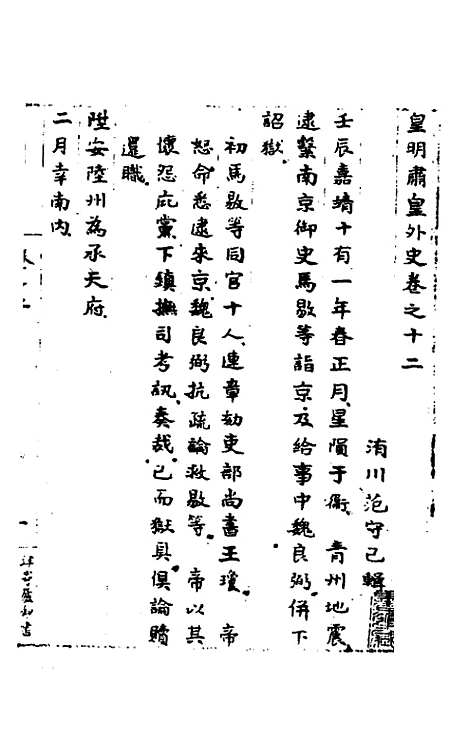 皇明肅皇外史卷之十二
洧川范守己輯
壬辰嘉靖十有一年春正月星隕于衞青州地震
逮繫南京御史馬敭等詣京及給事中魏良弼併下
詔獄
初馬敭等同官十人連章劾吏部尚書王瓊帝
怒命悉逮來京魏良弼抗疏論救敭等帝以其
懷怨庇黨下鎮撫司考訊奏裁已而獄具俱論贖
還職
陞安陸州為承天府
二月幸南內